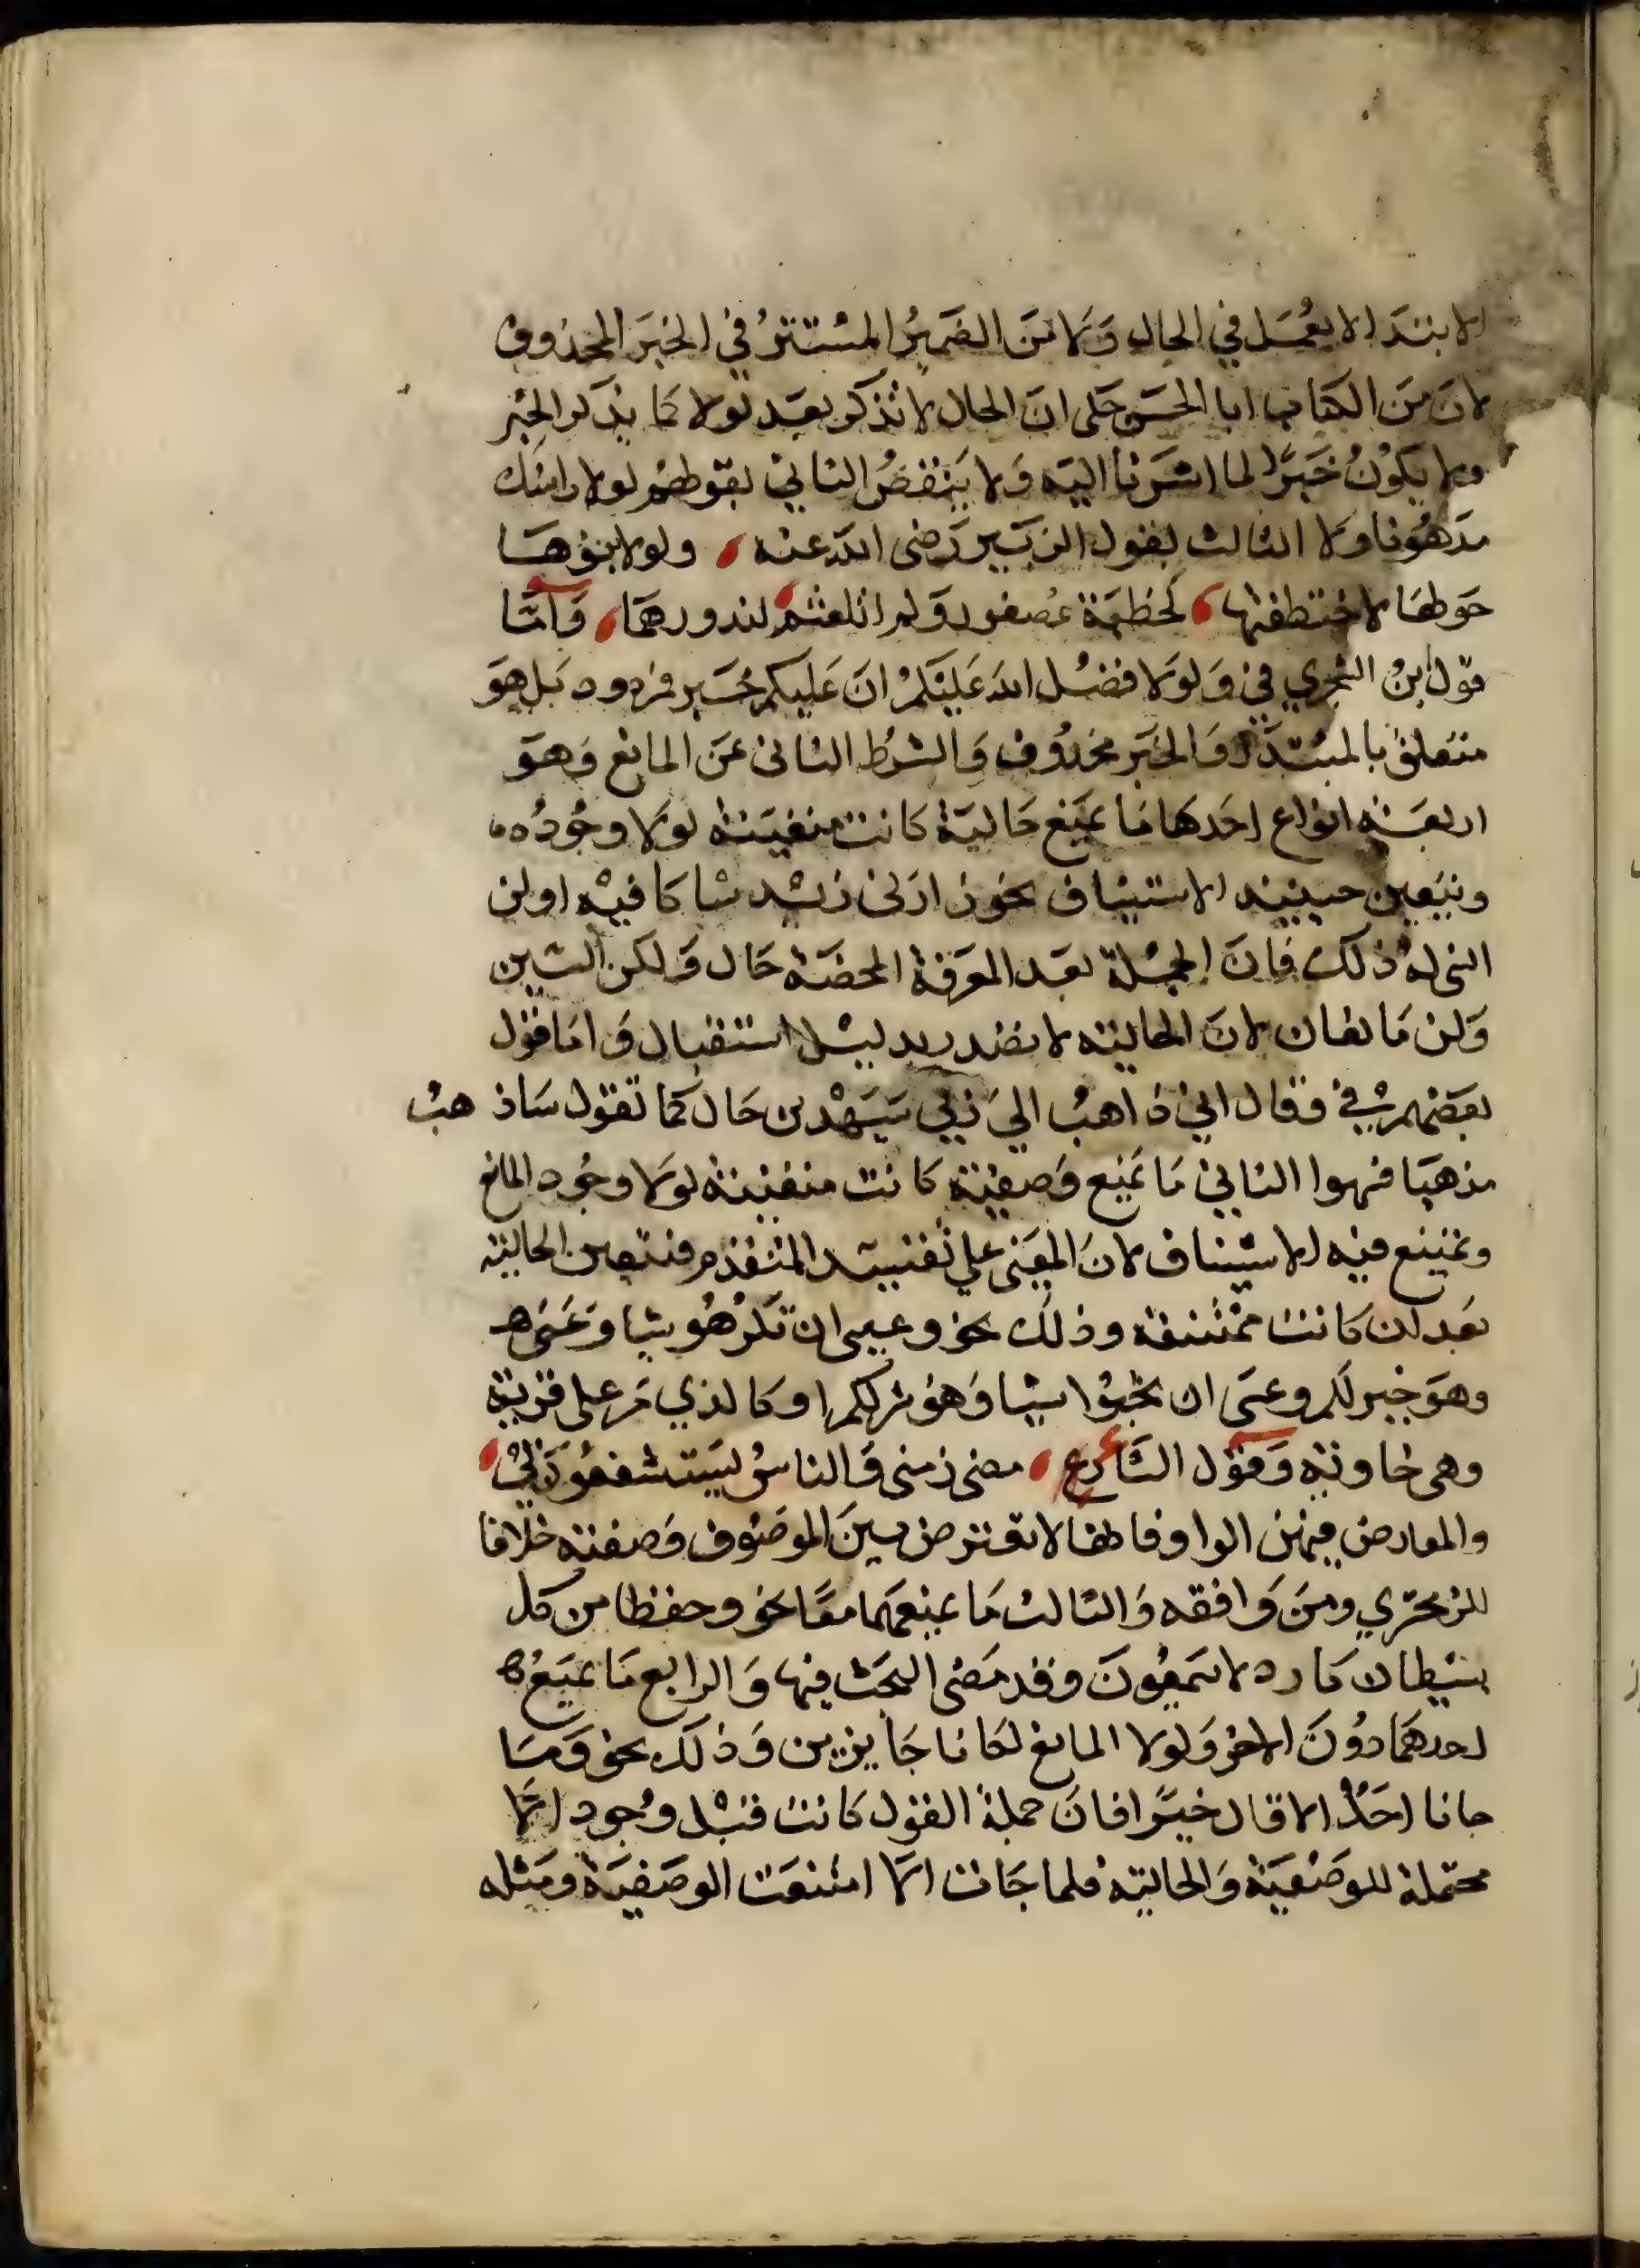 الابتدا لا يعمل في الحال وَلا مَن الضمير المستتر في الخبر المحذوف
لان من الكتاب ابا الحسن حكى ان الحال لا تذكر بعد لولا كما يذكر الخبر
ولا يكون خبرًا لما اشرنا اليه وَلا ينقض الثاني بقولهم لولا راسك
مدهونا ولا الثالث بقول الزبير رضى الله عنه ، ولولا بنوها
حولها لاختطفتها ، كخطمة عصفور وَلم اتلعثم لندورهما ، وَامَّا
قول ابن الشجري في وَلولا فضل الله عليكم ان عليكم خبر فمردود بل هو
متعلق بالمبتدا وَالخبر محذوف وَالشرط الثانى عن المانع وَهو
اربعة انواع احدها ما يمنع حالية كانت منفينة لولا وجوده
ويتعين حينيند الاستيناف نحو زارنى زيد ساكافيه او لن
انسى له ذلك فان الجملة بعد المعرفة المحضة حال وَلكن السين
وَلن مانعان لان الحالية لا تصدر بدليل استقبال وَاما قول
بعضهم في وقال اني ذاهب الي ربي سيهدين حال كما تقول ساذ هب
مذهبا فهوا الثاني ما يمنع وَصفية كانت منفينة لولا وجود المانع
ويمتنع فيه الاستيناف لان المعنى على تقييد المتقدم فتتعين الحالية
بعد ان كانت ممتنعة وذلك نحو وعسى ان تكرهو شيا وَعسى هـ
وهو خير لكم وعسى ان تحبوا شيا وَهو شر لكم او كالذي مر على قرية
وهى خاوية وَقول الشاعر ، مضى زمنى وَالناس يستشفعون بي ،
والمعارض فيهن الواو فانها لا تعترض بين الموصوف وَصفته خلافا
للزمخشري ومن وَافقه وَالثالث ما يمنعهما معًا نحو وحفظا من كل
شيطان مارد لا يسمعون وقد مضى البحث فيها وَالرابع ما يمنع
احدهما دون الاخر وَلولا المانع لكانا جايزين وَذلك نحو وَمَا
جانا احدٌ الا قال خيرًا فان جملة القول كانت قبْل وجود الا
محتملة للوصفية وَالحالية فلما جَات الا امتنعت الوصفية ومثله